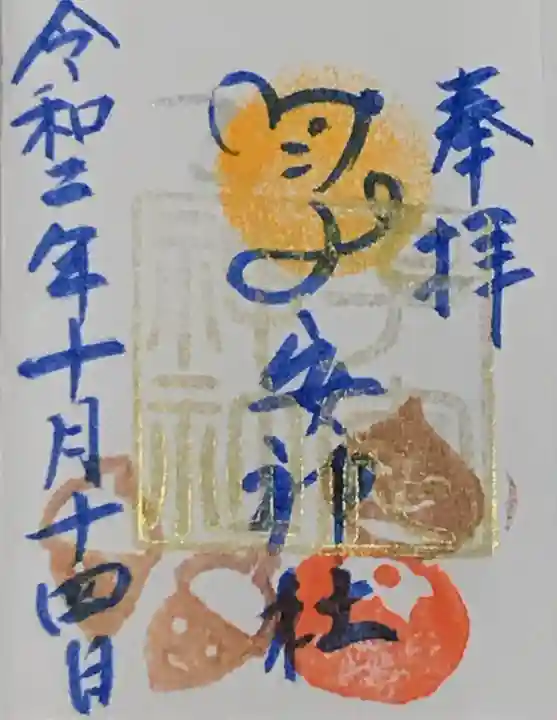 奉拝
子安神社
令和二年十月十四日